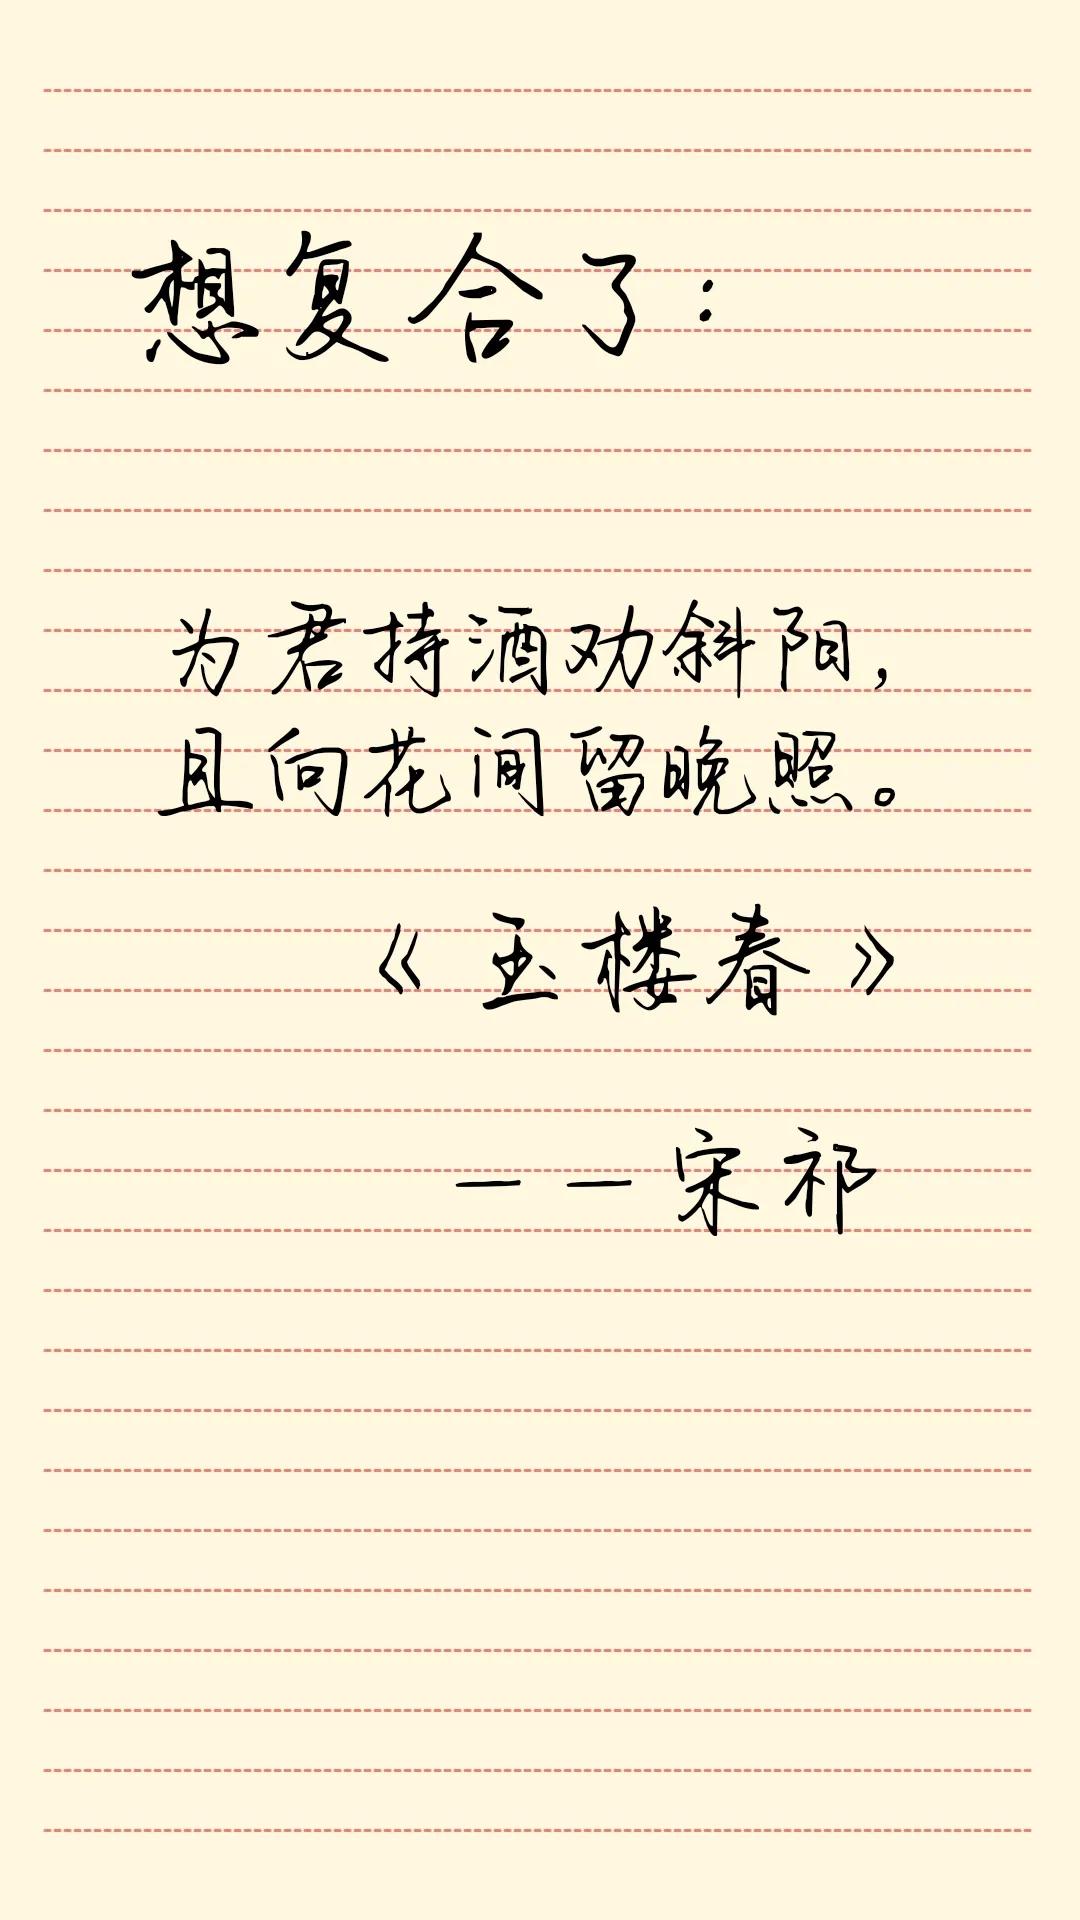 想复合了：
为君持酒劝斜阳，
且向花间留晚照。
《玉楼春》
——宋祁